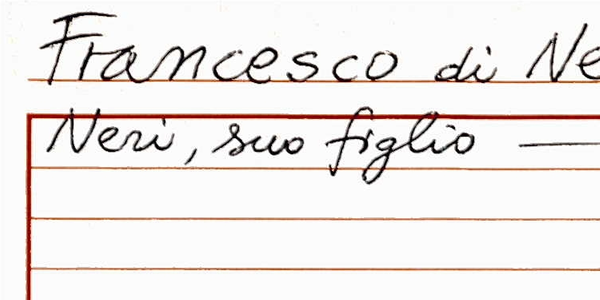 Francesco di Ne
Neri, suo figlio —